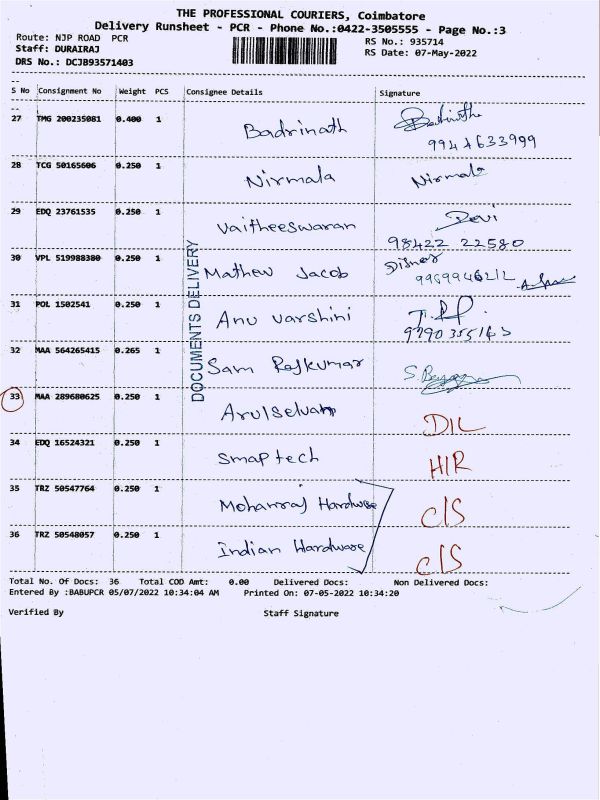 THE PROFESSIONAL COURIERS, Coimbatore
Delivery Runsheet - PCR - Phone No.:0422-3505555 - Page No.:3
Route: NJP ROAD PCR
RS No.: 935714
Staff: DURAIRAJ
RS Date: 07-May-2022
DRS No.: DCJB93571403
S No Consignment No Weight PCS Consignee Details Signature
27 TMG 200235081 0.400 1 Badrinath Badrinath
9944633999
28 TCG 50165606 0.250 1 Nirmala Nirmala
29 EDQ 23761535 0.250 1 Vaitheeswaran Devi
98422 22580
30 VPL 519988380 0.250 1 Mathew Jacob
31 POL 1502541 0.250 1 Anu varshini
32 MAA 564265415 0.265 1 Sam Rajkumar
DOCUMENTS DELIVERY
33 MAA 289680625 0.250 1 Arulselvan D/L
34 EDQ 16524321 0.250 1 Smaptech H/R
35 TRZ 50547764 0.250 1 Mohanraj Hardware C/S
36 TRZ 50548057 0.250 1 Indian Hardware C/S
Total No. Of Docs: 36 Total COD Amt: 0.00 Delivered Docs: Non Delivered Docs:
Entered By :BABUPCR 05/07/2022 10:34:04 AM Printed On: 07-05-2022 10:34:20
Verified By Staff Signature